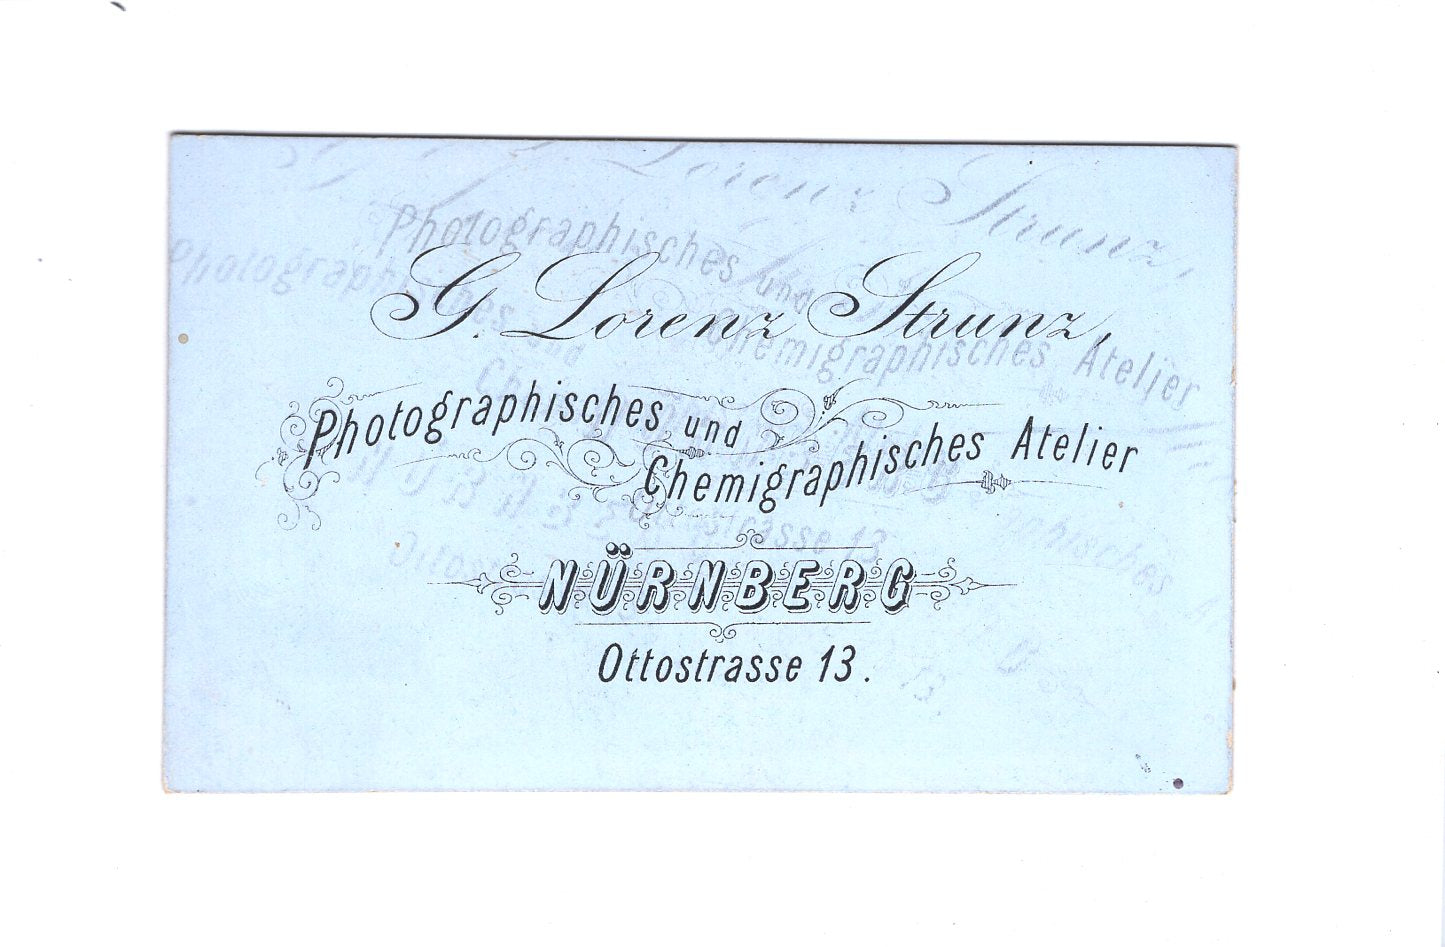 G. Lorenz Strunz,
Photographisches und
Chemigraphisches Atelier
NÜRNBERG
Ottostrasse 13.